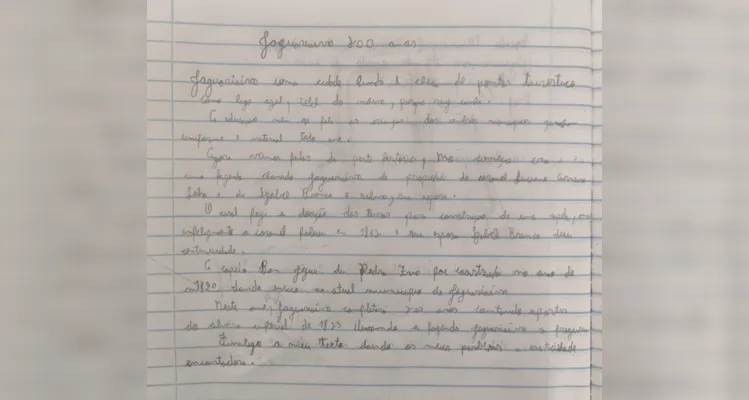 Jaguariaíva 200 anos
Jaguariaíva como cidade linda é cheia de pontos turísticos
Como lago azul, vale do, parque ruy cunha.
A educação não se fala por dos outros municípios ganham
uniforme e material todo ano.
Agora vamos falar da parte histórica, No começo era
uma fazenda chamada Jaguariaíva de propriedade do coronel Luciano Carneiro
Lobo e de Izabel Branco e Silva, sua esposa.
O casal fez a doação das terras para construção de uma capela, mas
infelizmente o coronel faleceu em e sua esposa Izabel Branco deu
continuidade.
A capela Bom Jesus da Pedra Fria foi construída no ano de
dando início ao atual município de Jaguariaíva
Neste ano, Jaguariaíva completará 200 anos contando apartir
do alvará imperial de 1823 elevando a fazenda Jaguariaíva a freguesia
Finalizo o meu texto dando os meus parabéns a cidade
encantadora.